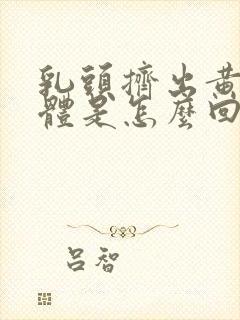 乳頭擠出黃
體是怎麼回
呂智